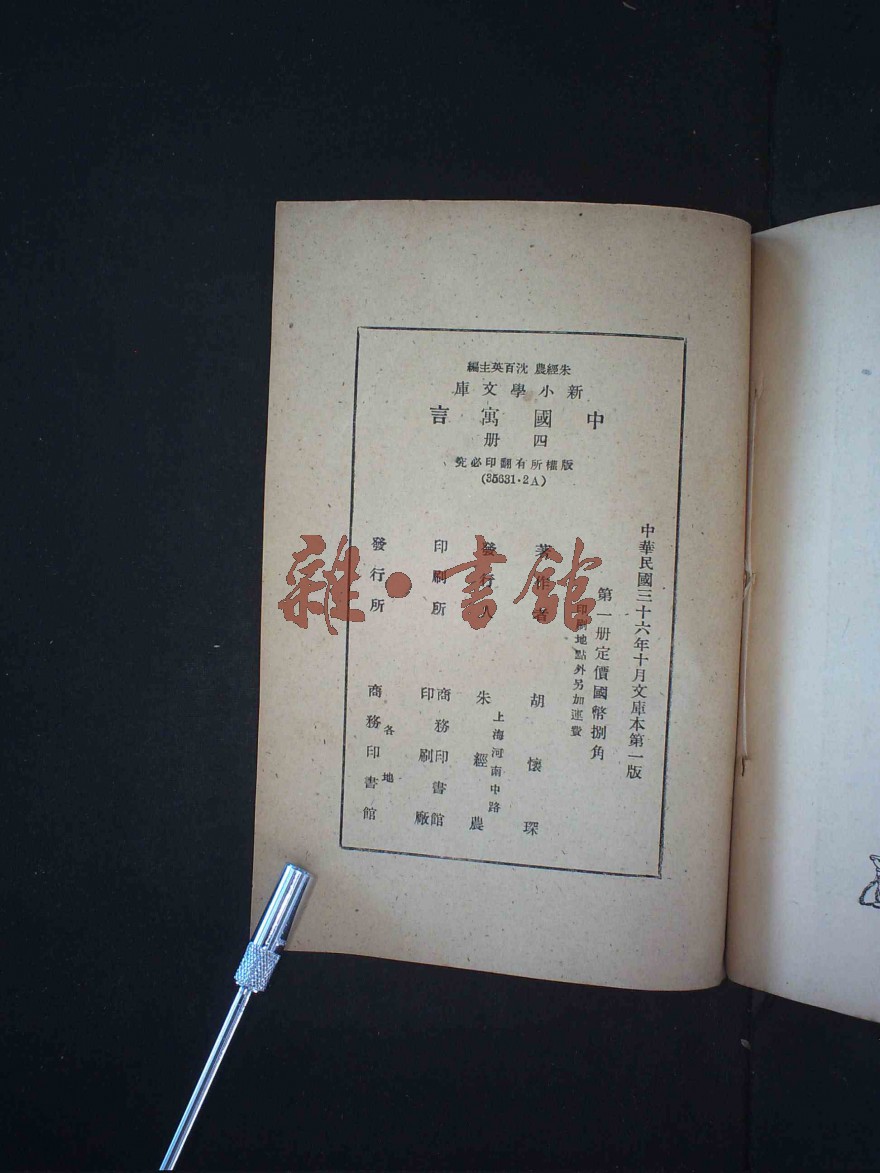 朱經農 沈百英主編
新小學文庫
中國寓言
四册
版權所有翻印必究
(35631·2A)
中華民國三十六年十月文庫本第一版
第一册定價國幣捌角
印刷地點外另加運費
著作者 胡懷琛
發行人 朱經農
上海河南中路
印刷所 商務印書館
印刷廠
發行所 商務印書館
各地
雜·書館